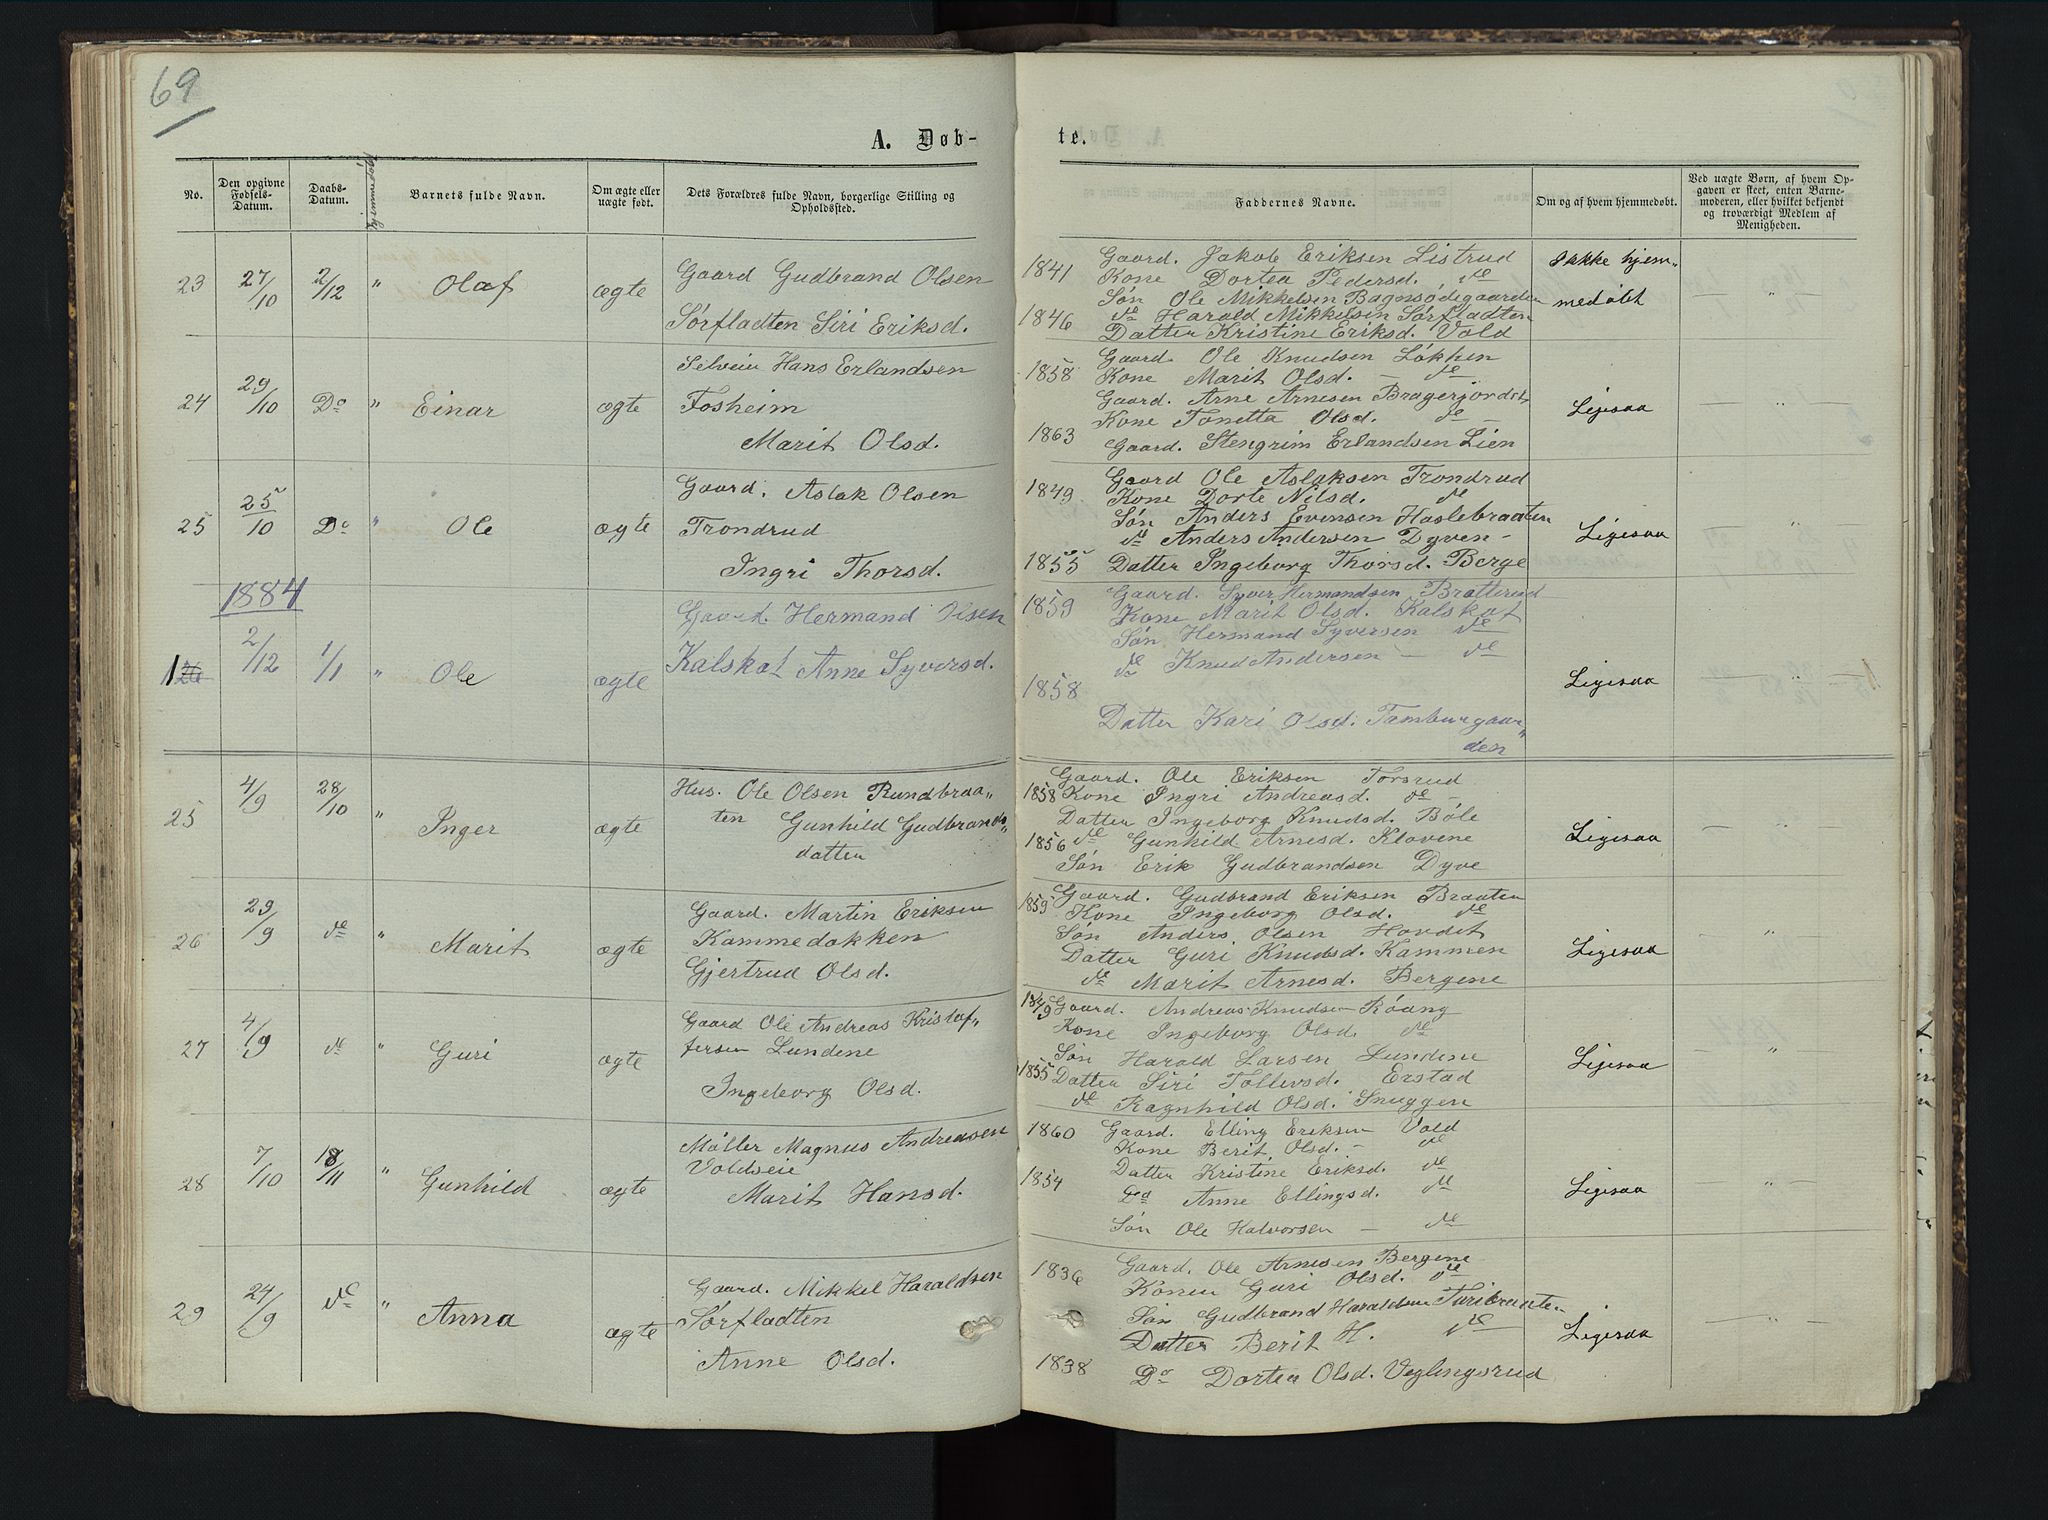 69
A. Døb-
te.
No.
Den opgivne Fødsels-Datum.
Daabs-Datum.
Barnets fulde Navn.
Om ægte eller uægte født.
Dets Forældres fulde Navn, borgerlige Stilling og Opholdssted.
Faddernes Navne.
Om og af hvem hjemmedøbt.
Ved uægte Børn, af hvem Op-
gaven er skeet, enten Barne-
moderen, eller hvilket bekjendt
og troværdigt Medlem af
Menigheden.
23 27/10 2/12 " Olaf ægte
Gaard Gudbrand Olsen
Sørfladten Siri Eriksd.
1841
1846
Gaard. Jakob Eriksen Listrud
Kone Dortea Pedersd. do
Søn Ole Mikkelsen Bagnsødegaarden
do Harald Mikkelsen Sørfladten
Datter Kristine Eriksd. Vold
Ikke hjem-
medøbt
24 29/10 Do " Einar ægte
Selveier Hans Erlandsen
Fosheim
Marit Olsd.
1858
1863
Gaard. Ole Knudsen Løkken
Kone Marit Olsd. - do
Gaard. Arne Arnesen Bragerjordet
Kone Tonetta Olsd. do
Gaard. Stengrim Erlandsen Lien
Ligesaa
25 25/10 Do " Ole ægte
Gaard. Aslak Olsen
Trondrud
Ingri Thorsd.
1849
1855
Gaard Ole Aslaksen Trondrud
Kone Dorte Nilsd. do
Søn Anders Evensen Haslebraaten
do Anders Andersen Dyven -
Datter Ingeborg Thorsd. Berge
Ligesaa
1884
1 26 2/12 1/1 " Ole ægte
Gaard. Hermand Olsen
Kalskot Anne Syversd.
1859
1858
Gaard. Syver Hermandsen Bratterud
Kone Marit Olsd. Kalskot
Søn Hermand Syversen do
do Knud Andersen - do
Datter Kari Olsd. Tamburgaar"
den
Ligesaa
25 4/9 28/10 " Inger ægte
Hus. Ole Olsen Rundbraa"
ten Gunhild Gudbrands"
datter
1858
1856
Gaard. Ole Eriksen Torsrud
Kone Ingri Andreasd. do -
Datter Ingeborg Knudsd. Bøle
do Gunhild Arnesd. Klovene
Søn Erik Gudbrandsen Dyve
Ligesaa
26 29/9 do " Marit ægte
Gaard. Martin Eriksen
Kammedokken
Gjertrud Olsd.
1859
Gaard. Gudbrand Eriksen Braaten
Kone Ingeborg Olsd. do
Søn Anders Olsen Hovdet
Datter Guri Knudsd. Kammen
do Marit Arnesd. Bergene
Ligesaa
27 4/9 do " Guri ægte
Gaard Ole Andreas Kristof"
fersen Lundene
Ingeborg Olsd.
1849
1855
Gaard. Andreas Knudsen Roang
Kone Ingeborg Olsd. do
Søn Harald Larsen Lundene
Datter Siri Tollevsd. Erstad
do Ragnhild Olsd. Snuggen
Ligesaa
28 7/10 18/11 " Gunhild ægte
Møller Magnus Andreasen
Voldseie
Marit Hansd.
1860
1854
Gaard. Elling Eriksen Vold
Kone Berit Olsd. - do
Datter Kristine Eriksd. do
Do Anne Ellingsd. do
Søn Ole Halvorsen - do
Ligesaa
29 24/9 do " Anna ægte
Gaard. Mikkel Haraldsen
Sørfladten
Anne Olsd.
1836
1838
Gaard. Ole Arnesen Bergene
Konen Guri Olsd. do
Søn Gudbrand Haraldsen Turibraaten
Datter Berit H. do
Do Dortea Olsd. Veglingsrud
Ligesaa